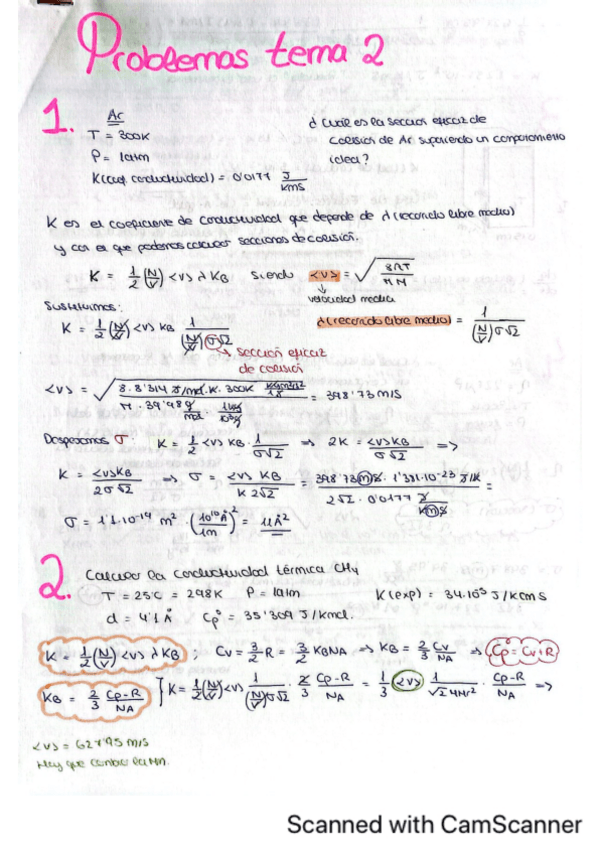 Problemas tema 2
1.
Ar
T = 300K
P = 1atm
K(coef conductividad) = 0'0177 J/KmS
¿Cuál es la sección eficaz de
colisión de Ar suponiendo un comportamiento
ideal?
K es el coeficiente de conductividad que depende de λ (recorrido libre medio)
y con el que podemos calcular secciones de colisión.
K = 1/2 (N/V) <v> λ KB Siendo <v> = √(8RT/πM)
velocidad media
Sustituimos:
λ (recorrido libre medio) = 1/((N/V)σ√2)
K = 1/2 (N/V) <v> KB 1/((N/V)σ√2)
sección eficaz
de colisión
<v> = = 398'73 m/s
Despejamos σ: K = 1/2 <v> KB · 1/(σ√2) => 2K = <v>KB/(σ√2) =>
K = <v>KB/(2σ√2) => σ = <v> KB/(K 2√2) = 398'73 m/s · 1'381·10⁻²³ J/K / (2√2 · 0'0177 J/KmS) =
σ = 1'1·10⁻¹⁹ m² · (10¹⁰Å/1m)² = 11Å²
2. Calcular la conductividad térmica CH4
T = 25ºC = 298K P = 1atm K(exp) = 34·10⁻⁵ J/Kcms
d = 4'1 Å Cp° = 35'309 J/Kmol.
K = 1/2 (N/V) <v> λ KB ; Cv = 3/2 R = 3/2 KBNA => KB = 2/3 Cv/NA => Cp° = Cv+R
KB = 2/3 (Cp-R)/NA } K = 1/2 (N/V) <v> 1/((N/V)σ√2) · 2/3 (Cp-R)/NA = 1/3 <v> · (Cp-R)/NA =>
<v> = 627'95 m/s
Hay que cambiar la Mm.
Scanned with CamScanner